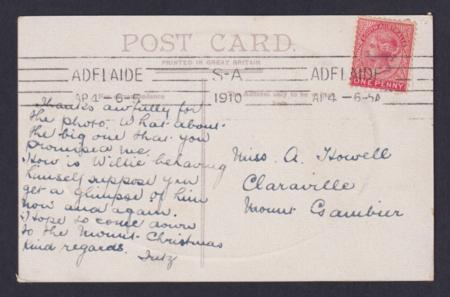 POST CARD.
PRINTED IN GREAT BRITAIN
ADELAIDE S-A ADELAIDE
AP4-6-5- 1910 AP4-6-5
ONE PENNY
Thanks awfully for
the photo, What about
the big one that you
promised me.
How is Willie behaving
himself suppose you
get a glimpse of him
now and again.
I hope to come down
to the Mount Christmas
kind regards.
Fritz
Miss A. Howell
Claraville
Mount Gambier